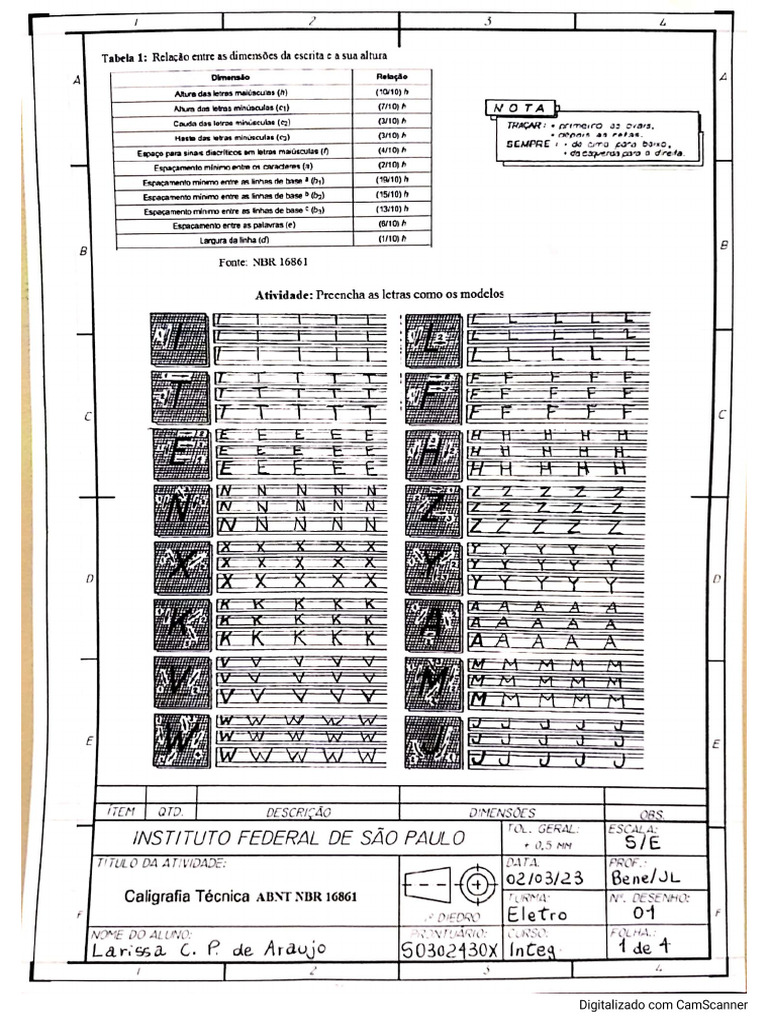 1 2 3 4
Tabela 1: Relação entre as dimensões da escrita e a sua altura
Dimensão Relação
Altura das letras maiúsculas (h) (10/10) h
Altura das letras minúsculas (c1) (7/10) h
Cauda das letras minúsculas (c2) (3/10) h
Haste das letras minúsculas (c3) (3/10) h
Espaço para sinais diacríticos em letras maiúsculas (f) (4/10) h
Espaçamento mínimo entre os caracteres (a) (2/10) h
Espaçamento mínimo entre as linhas de base a (b1) (19/10) h
Espaçamento mínimo entre as linhas de base b (b2) (15/10) h
Espaçamento mínimo entre as linhas de base c (b3) (13/10) h
Espaçamento entre as palavras (e) (6/10) h
Largura da linha (d) (1/10) h
Fonte: NBR 16861
NOTA
TRAÇAR: • primeiro as ovais,
• depois as retas.
SEMPRE: • de cima para baixo,
• da esquerda para a direita.
A A
B B
C C
D D
E E
F F
Atividade: Preencha as letras como os modelos
I I I I I I
I I I I I
I I I I I
L L L L L L
L L L L L
L L L L L
T T T T T T
T T T T T
T T T T T
F F F F F F
F F F F F
F F F F F
E E E E E E
E E E E E
E E E E E
H H H H H H
H H H H H
H H H H H
N N N N N N
N N N N N
N N N N N
Z Z Z Z Z Z
Z Z Z Z Z
Z Z Z Z Z
X X X X X X
X X X X X
X X X X X
Y Y Y Y Y Y
Y Y Y Y Y
Y Y Y Y Y
K K K K K K
K K K K K
K K K K K
A A A A A A
A A A A A
A A A A A
V V V V V V
V V V V V
V V V V V
M M M M M M
M M M M M
M M M M M
W W W W W W
W W W W W
W W W W W
J J J J J J
J J J J J
J J J J J
ITEM QTD. DESCRIÇÃO DIMENSÕES OBS.
INSTITUTO FEDERAL DE SÃO PAULO
TOL. GERAL:
± 0,5 MM
ESCALA:
S/E
TÍTULO DA ATIVIDADE:
Caligrafia Técnica ABNT NBR 16861
1º DIEDRO
DATA:
02/03/23
PROF.:
Bene/JL
TURMA:
Eletro
Nº. DESENHO:
01
NOME DO ALUNO:
Larissa C. P. de Araujo
PRONTUÁRIO:
S0302430X
CURSO:
Integ
FOLHA:
1 de 4
1 2 3 4
Digitalizado com CamScanner